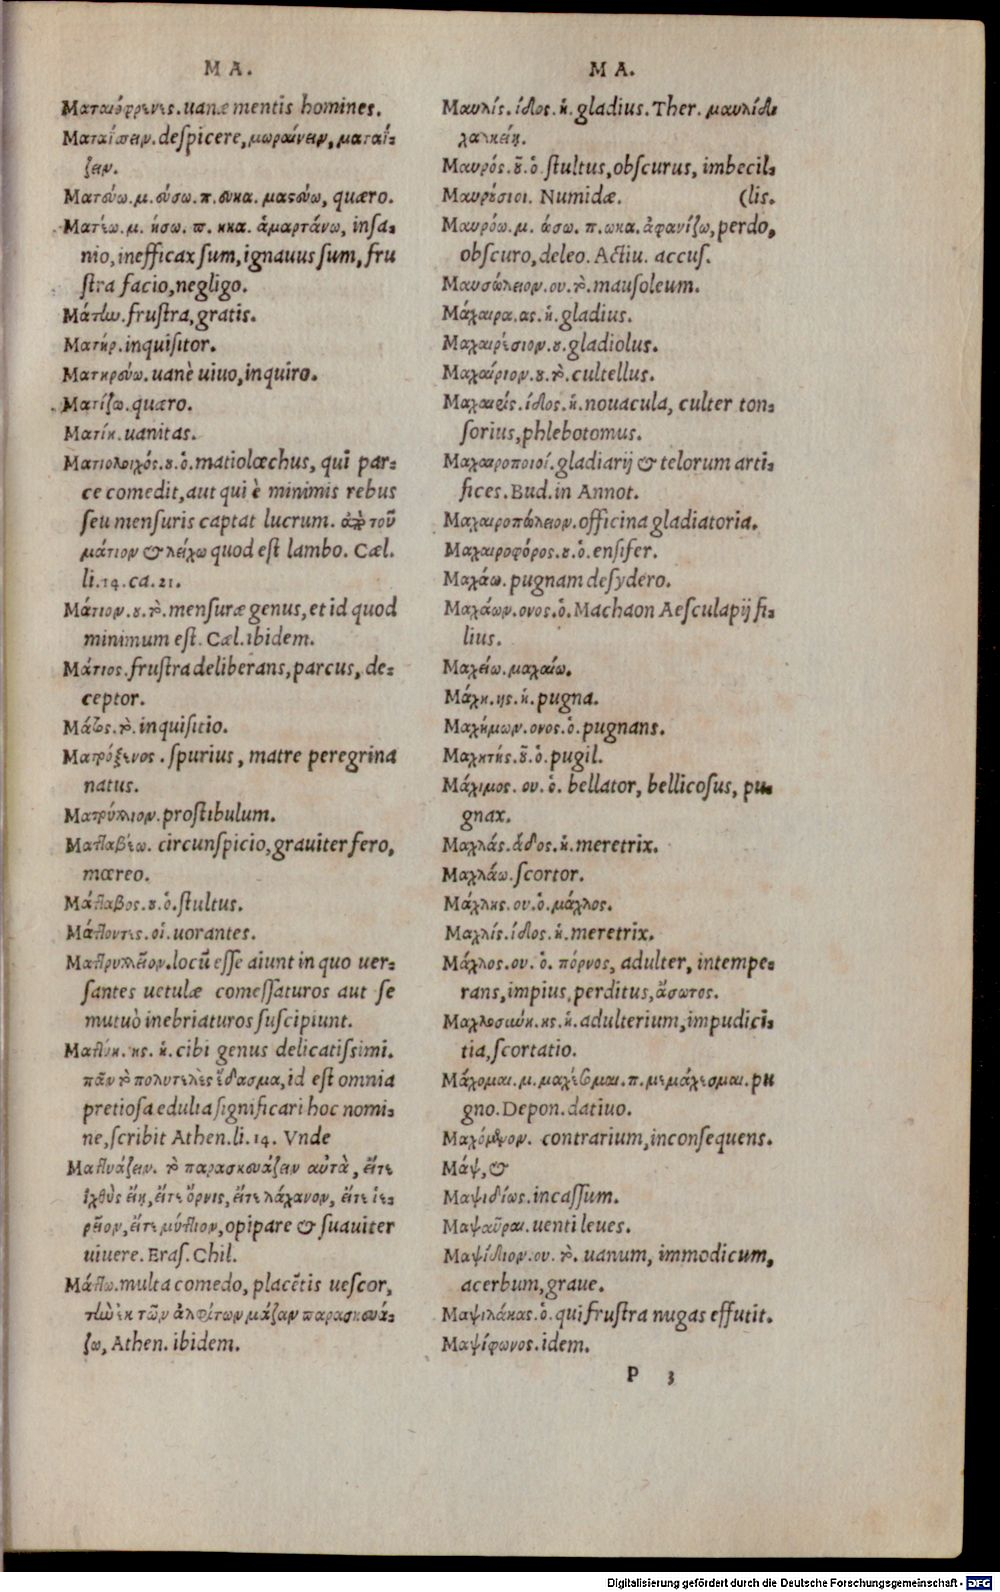 MA.
Ματαιόφρενες. uanæ mentis homines.
Ματαΐσειν. deſpicere, μωραίνειν, ματαΐ-
ζειν.
Ματεύω. μ. εύσω. π. ευκα. μαστεύω, quæro.
Ματέω. μ. ήσω. π. ηκα. ἁμαρτάνω, inſa-
nio, inefficax ſum, ignauus ſum, fru
ſtra facio, negligo.
Μάτην. fruſtra, gratis.
Ματήρ. inquiſitor.
Ματηρεύω. uanè uiuo, inquiro.
Ματίζω. quæro.
Ματίη. uanitas.
Ματιολοιχός. ου. ὁ. matiolœchus, qui par-
ce comedit, aut qui è minimis rebus
ſeu menſuris captat lucrum. ἀπὸ τοῦ
μάτιον & λείχω quod eſt lambo. Cæl.
li. 14. ca. 21.
Μάτιον. ου. τὸ. menſuræ genus, et id quod
minimum eſt. Cæl. ibidem.
Μάτιος. fruſtra deliberans, parcus, de-
ceptor.
Μάτος. τὸ. inquiſitio.
Ματρόξενος. ſpurius, matre peregrina
natus.
Ματρύλιον. proſtibulum.
Ματλαβέω. circunſpicio, grauiter fero,
mœreo.
Μάτλαβος. ου. ὁ. ſtultus.
Μάτλοντες. οἱ. uorantes.
Ματρυλεῖον. locū eſſe aiunt in quo uer-
ſantes uetulæ comeſſaturos aut ſe
mutuò inebriaturos ſuſcipiunt.
Ματύη. ης. ἡ. cibi genus delicatiſsimi.
πᾶν τὸ πολυτελὲς ἔδεσμα, id eſt omnia
pretioſa edulia ſignificari hoc nomi-
ne, ſcribit Athen. li. 14. Vnde
Ματυάζειν. τὸ παρασκευάζειν αὐτὰ, εἴτε
ἰχθὺς εἴη, εἴτε ὄρνις, εἴτε λάχανον, εἴτε ἱε-
ρεῖον, εἴτε μύτιον, opipare & ſuauiter
uiuere. Eraſ. Chil.
Μάτω. multa comedo, placētis ueſcor,
τὴν ἐκ τῶν ἀλφίτων μάζαν παρασκευά-
ζω, Athen. ibidem.
MA.
Μαυλίς. ίδος. ἡ. gladius. Ther. μαυλίδι
χαλκείῃ.
Μαυρός. οῦ. ὁ. ſtultus, obſcurus, imbecil-
Μαυρύσιοι. Numidæ. (lis.
Μαυρόω. μ. ώσω. π. ωκα. ἀφανίζω, perdo,
obſcuro, deleo. Actiu. accuſ.
Μαυσώλειον. ου. τὸ. mauſoleum.
Μάχαιρα. ας. ἡ. gladius.
Μαχαιρέσιον. ου. gladiolus.
Μαχαίριον. ου. τὸ. cultellus.
Μαχαιρίς. ίδος. ἡ. nouacula, culter ton-
ſorius, phlebotomus.
Μαχαιροποιοί. gladiarij & telorum arti-
fices. Bud. in Annot.
Μαχαιροπώλειον. officina gladiatoria.
Μαχαιροφόρος. ου. ὁ. enſifer.
Μαχάω. pugnam deſydero.
Μαχάων. ονος. ὁ. Machaon Aeſculapij fi-
lius.
Μαχείω. μαχαίω.
Μάχη. ης. ἡ. pugna.
Μαχήμων. ονος. ὁ. pugnans.
Μαχητής. οῦ. ὁ. pugil.
Μάχιμος. ου. ὁ. bellator, bellicoſus, pu-
gnax.
Μαχλάς. άδος. ἡ. meretrix.
Μαχλάω. ſcortor.
Μάχλης. ου. ὁ. μάχλος.
Μαχλίς. ίδος. ἡ. meretrix.
Μάχλος. ου. ὁ. πόρνος, adulter, intempe-
rans, impius, perditus, ἄσωτος.
Μαχλοσύνη. ης. ἡ. adulterium, impudici-
tia, ſcortatio.
Μάχομαι. μ. μαχέσομαι. π. μεμάχεσμαι. pu
gno. Depon. datiuo.
Μαχόμενον. contrarium, inconſequens.
Μάψ, &
Μαψιδίως. incaſſum.
Μαψαῦραι. uenti leues.
Μαψίδιον. ου. τὸ. uanum, immodicum,
acerbum, graue.
Μαψιλάκας. ὁ. qui fruſtra nugas effutit.
Μαψίφωνος. idem.
P 3
Digitalisierung gefördert durch die Deutsche Forschungsgemeinschaft - DFG